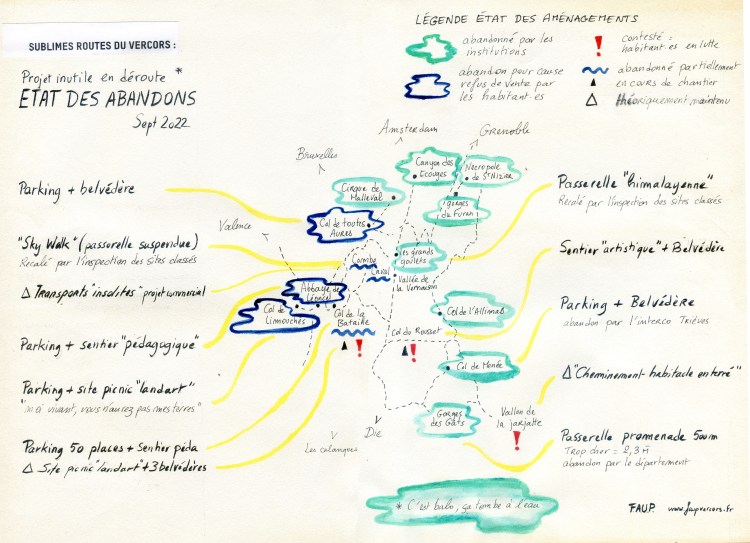 SUBLIMES ROUTES DU VERCORS :
Projet inutile en déroute *
ETAT DES ABANDONS
Sept 2022
LÉGENDE ÉTAT DES AMÉNAGEMENTS
abandonné par les
institutions
abandon pour cause
refus de vente par
les habitant.es
contesté =
habitant.es en lutte
abandonné partiellement
en cours de chantier
théoriquement maintenu
Parking + belvédère
"Sky Walk" (passerelle suspendue)
Recalé par l'inspection des sites classés
Δ Transports insolites "projet commercial
Parking + sentier "pédagogique"
Parking + site picnic "landart"
"moi vivant, vous n'aurez pas mes terres"
Parking 50 places + Sentier péda
Δ Site picnic "landart" + 3 belvédères
Bruxelles
Amsterdam
Grenoble
Valence
Cirque de
Malleval
Canyon des
Ecouges
Nécropole
de St Nizier
gorges
du Furon
Col de toutes
Aures
les grands
goulets
Combe
Laval
Vallée de
la Vernaison
Abbaye de
Léoncel
Col de
Limouches
Col de la
Bataille
Col du Rousset
Col de l'Allimas
Col de Menée
Gorges
des Gâts
Vallon de
la jarjatte
Die
Les calanques
Passerelle "himalayenne"
Recalé par l'inspection des sites classés
Sentier "artistique" + Belvédère
Parking + Belvédère
abandon par l'interco Trièves
Δ "Cheminement - habitacle enterré"
Passerelle promenade 500m
Trop cher = 2,3 M
abandon par le département
* C'est balo, ça tombe à l'eau
F.A.U.P. www.faupvercors.fr